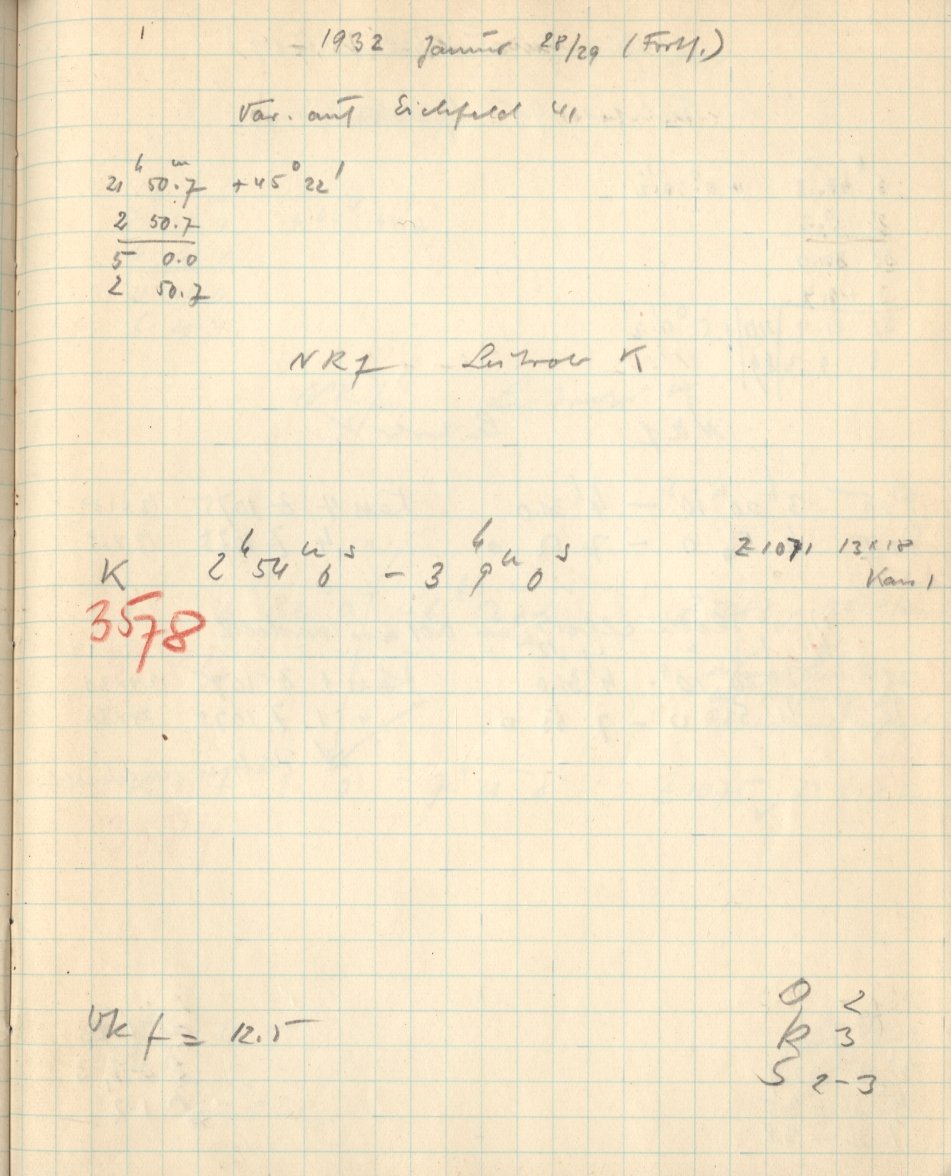 1932 Januar 28/29 (Forts.)
Var. auf Eichfeld 41
21ʰ 50.7ᵐ +45° 22'
2 50.7
5 0.0
2 50.7
NR7 Leitrohr K
K 2ʰ 54ᵐ 0ˢ – 3ʰ 9ᵐ 0ˢ Z1071 13x18
Kass 1
3578
f = 12.5
2
R 3
S 2-3